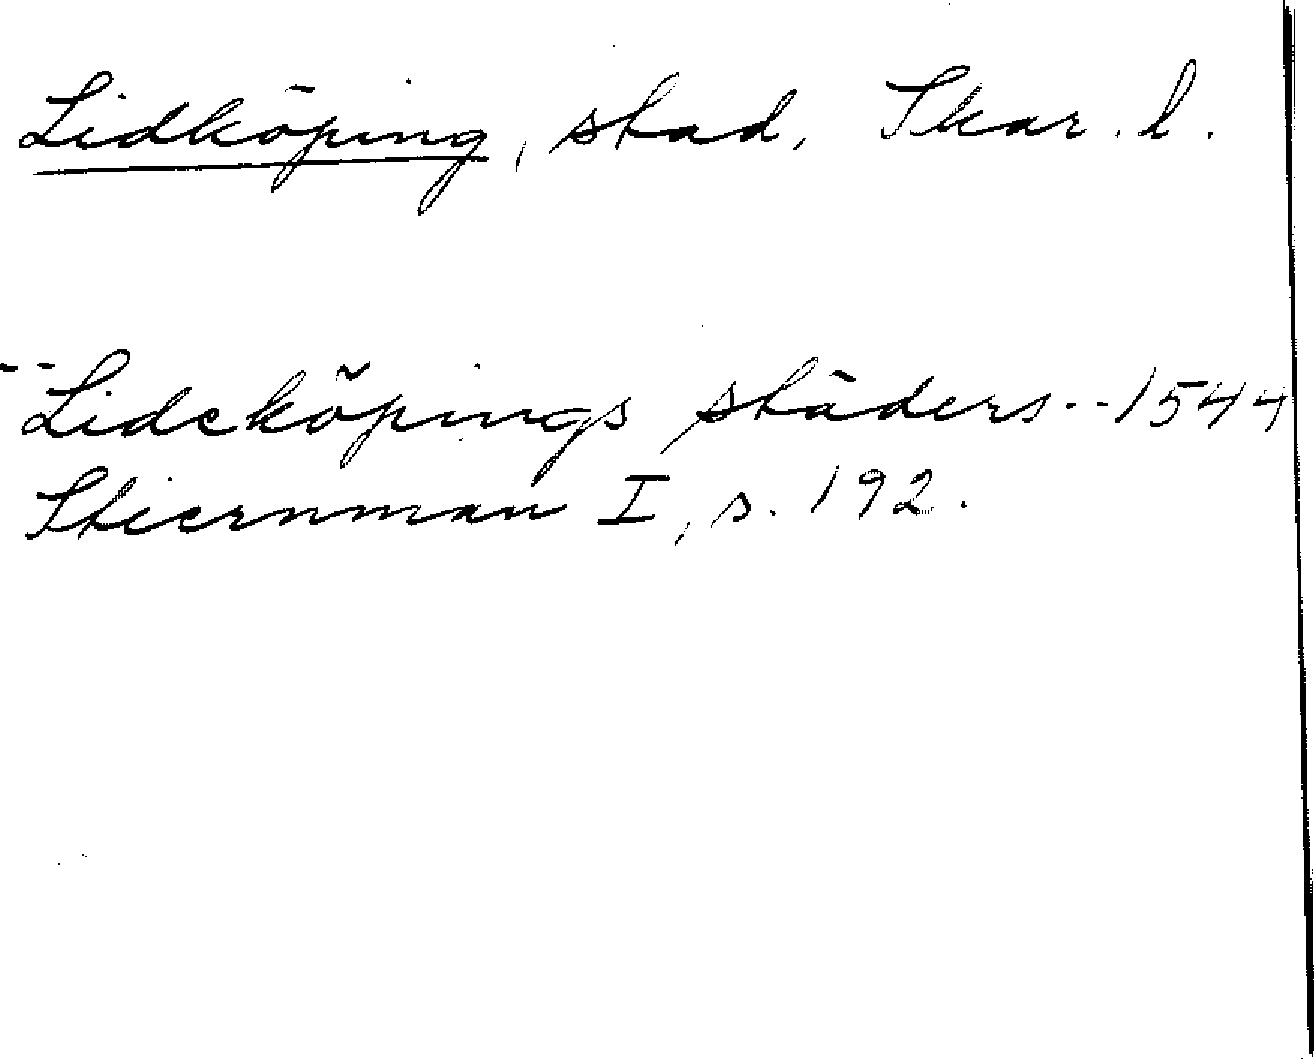 Lidköping, stad, Skar. l.
-- Lideköpings städers -- 1544
Stiernman I, s. 192.